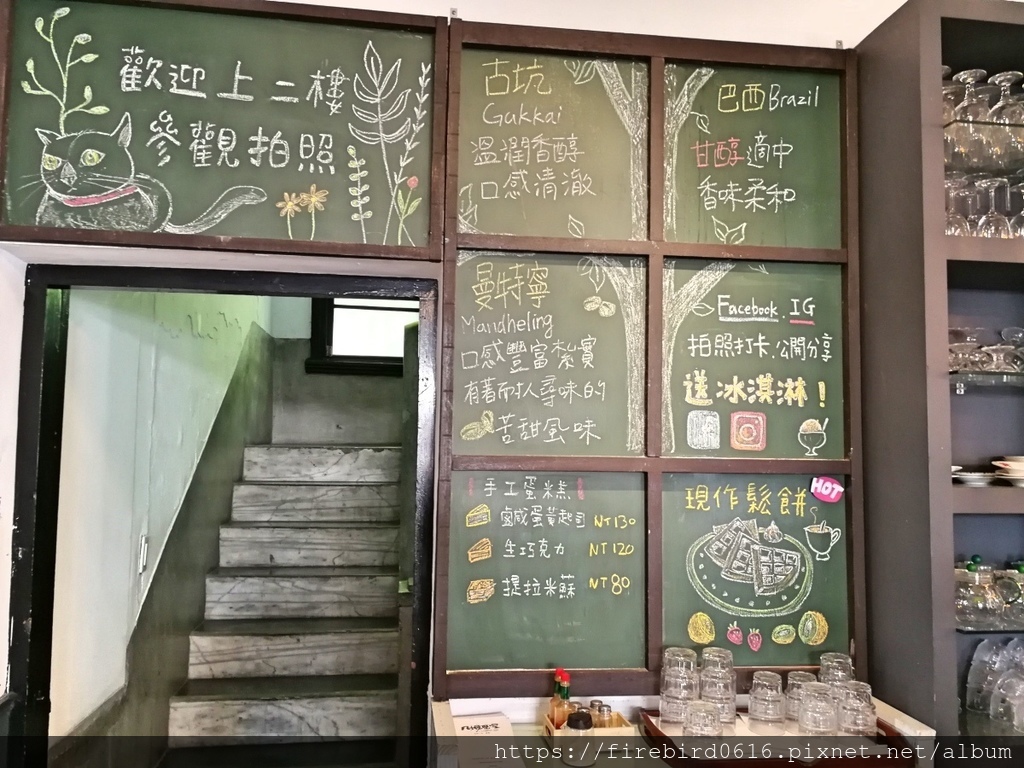 歡迎上二樓
參觀拍照
古坑
Gukkai
溫潤香醇
口感清澈
巴西Brazil
甘醇適中
香味柔和
曼特寧
Mandheling
口感豐富紮實
有著耐人尋味的
苦甜風味
Facebook. IG
拍照打卡.公開分享
送冰淇淋!
手工蛋糕
鹹蛋黃起司 NT130
生巧克力 NT120
提拉米蘇 NT80
現作鬆餅 HOT
https://firebird0616.pixnet.net/album